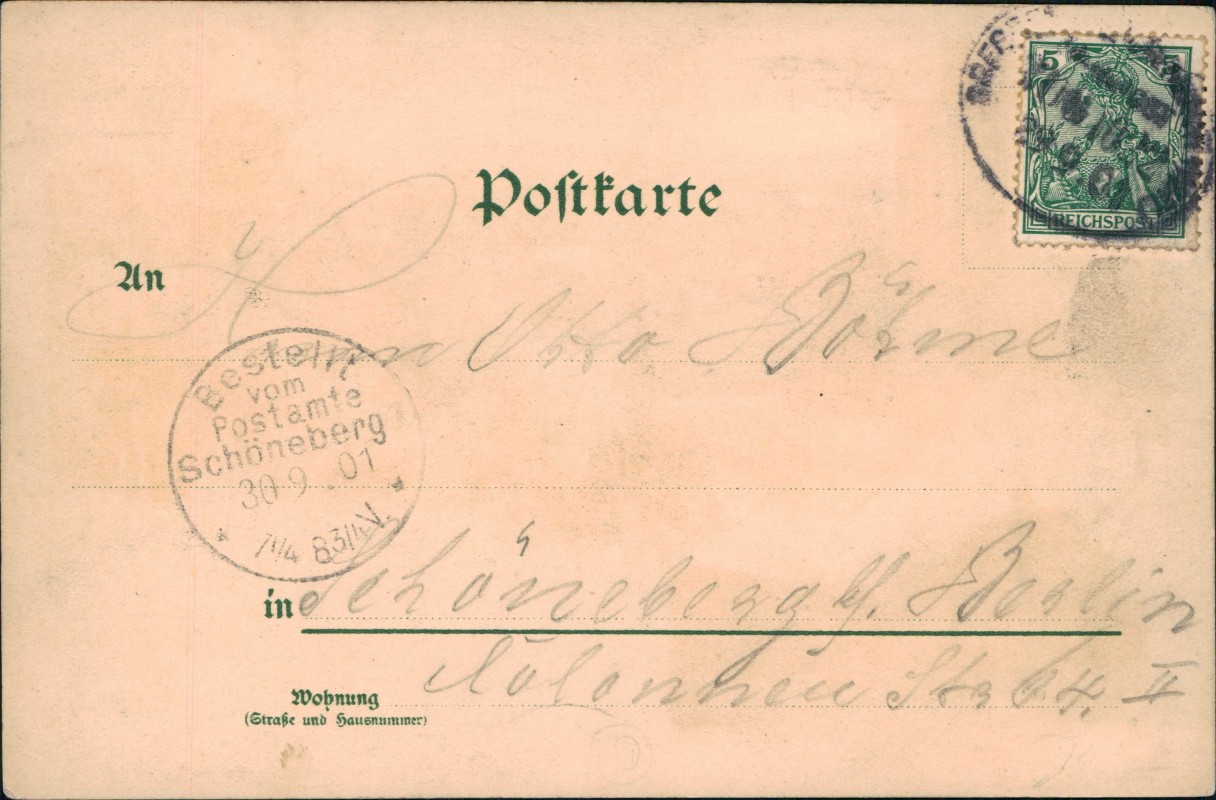 Postkarte
5
REICHSPOST
An
Herrn Otto Böhme
Bestellt
vom
Postamte
Schöneberg
30 9 .01
7 1/4 8 3/4 V.
in Schöneberg b/. Berlin
Colonnen Str.
Wohnung
(Straße und Hausnummer)